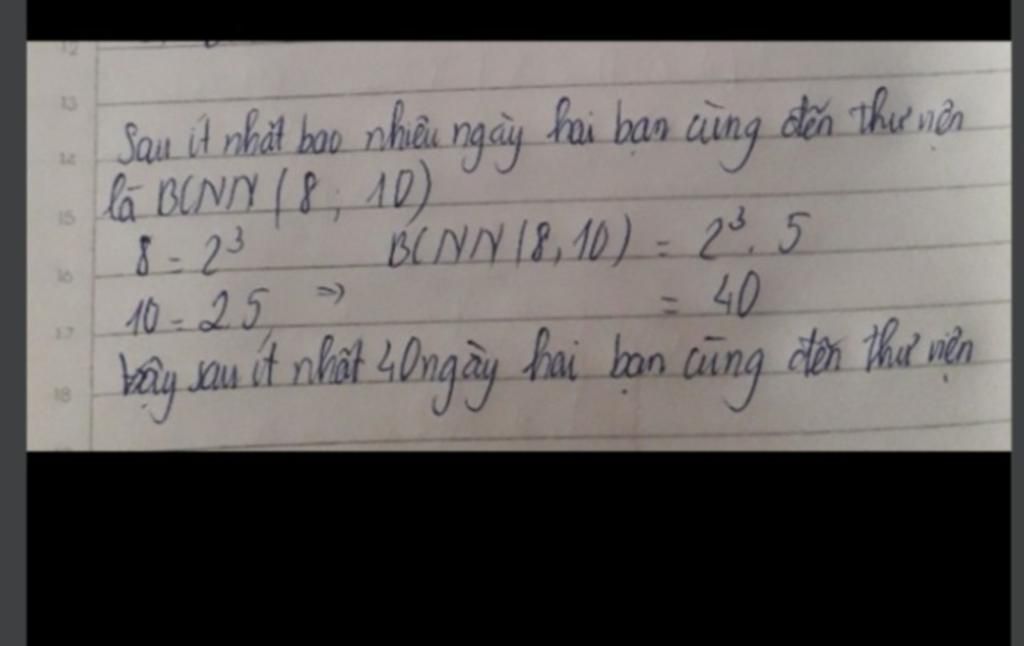 13
Sau ít nhất bao nhiêu ngày hai bạn cùng đến thư viện
14
là BCNN (8 ; 10)
15
8 = 2³ BCNN (8, 10) = 2³ . 5
16
10 = 2 5 ⇒ = 40
17
Vậy sau ít nhất 40 ngày hai bạn cùng đến thư viện
18